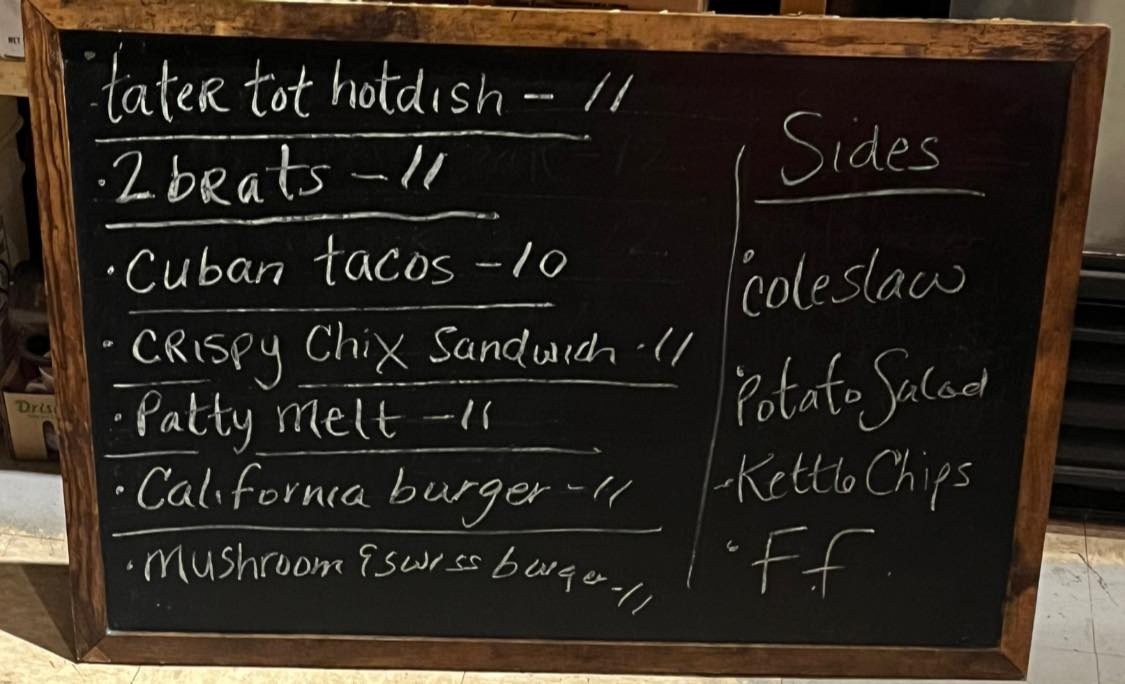 ·tater tot hotdish - 11
·2 brats - 11
·Cuban tacos - 10
·CRispy Chix Sandwich · 11
·Patty melt - 11
·California burger - 11
·Mushroom & swiss burger - 11
Sides
·coleslaw
·Potato Salad
-Kettle Chips
·Ff